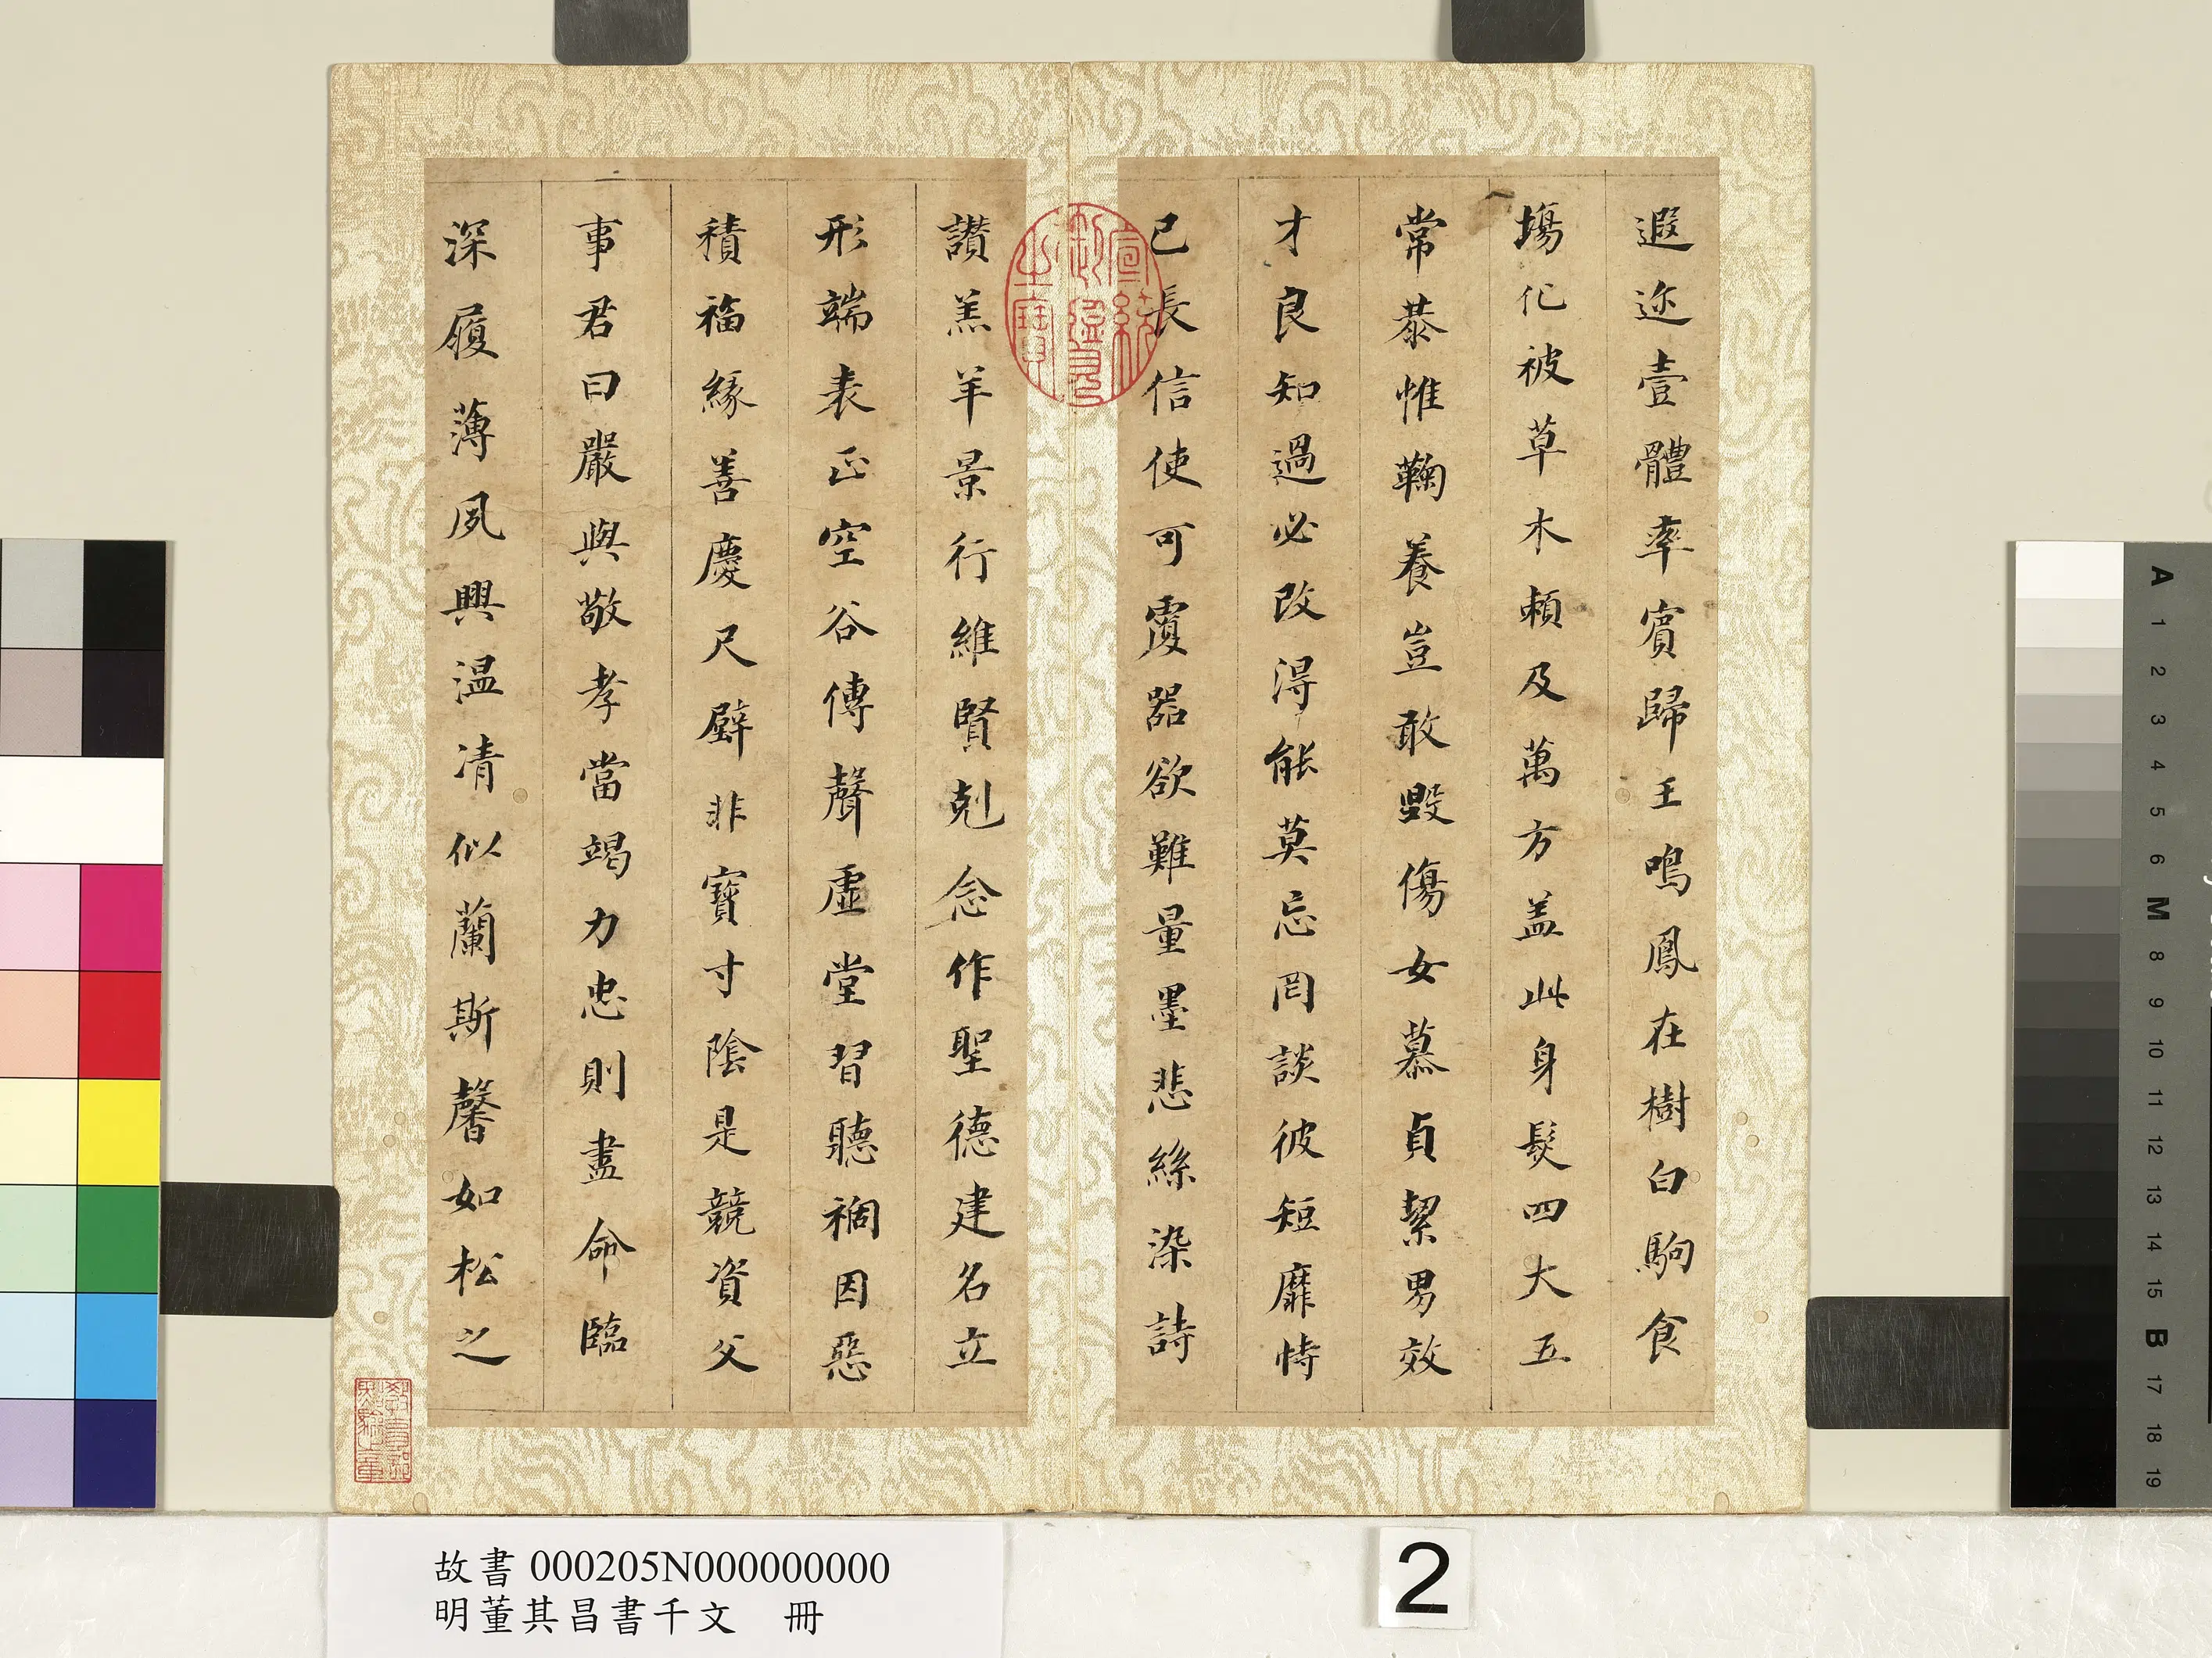 遐迩壹體率賓歸王鳴鳳在樹白駒食
場化被草木賴及萬方盖此身髮四大五
常恭惟鞠養豈敢毀傷女慕貞絜男效
才良知過必改得能莫忘罔談彼短靡恃
己長信使可覆器欲難量墨悲絲染詩
讃羔羊景行維賢剋念作聖德建名立
形端表正空谷傳聲虛堂習聽禍因惡
積福緣善慶尺璧非寶寸陰是競資父
事君曰嚴與敬孝當竭力忠則盡命臨
深履薄夙興温凊似蘭斯馨如松之
宣統御覽之寶
故書 000205N000000000
明董其昌書千文 冊
2
A 1 2 3 4 5 6 M 8 9 10 11 12 13 14 15 B 17 18 19